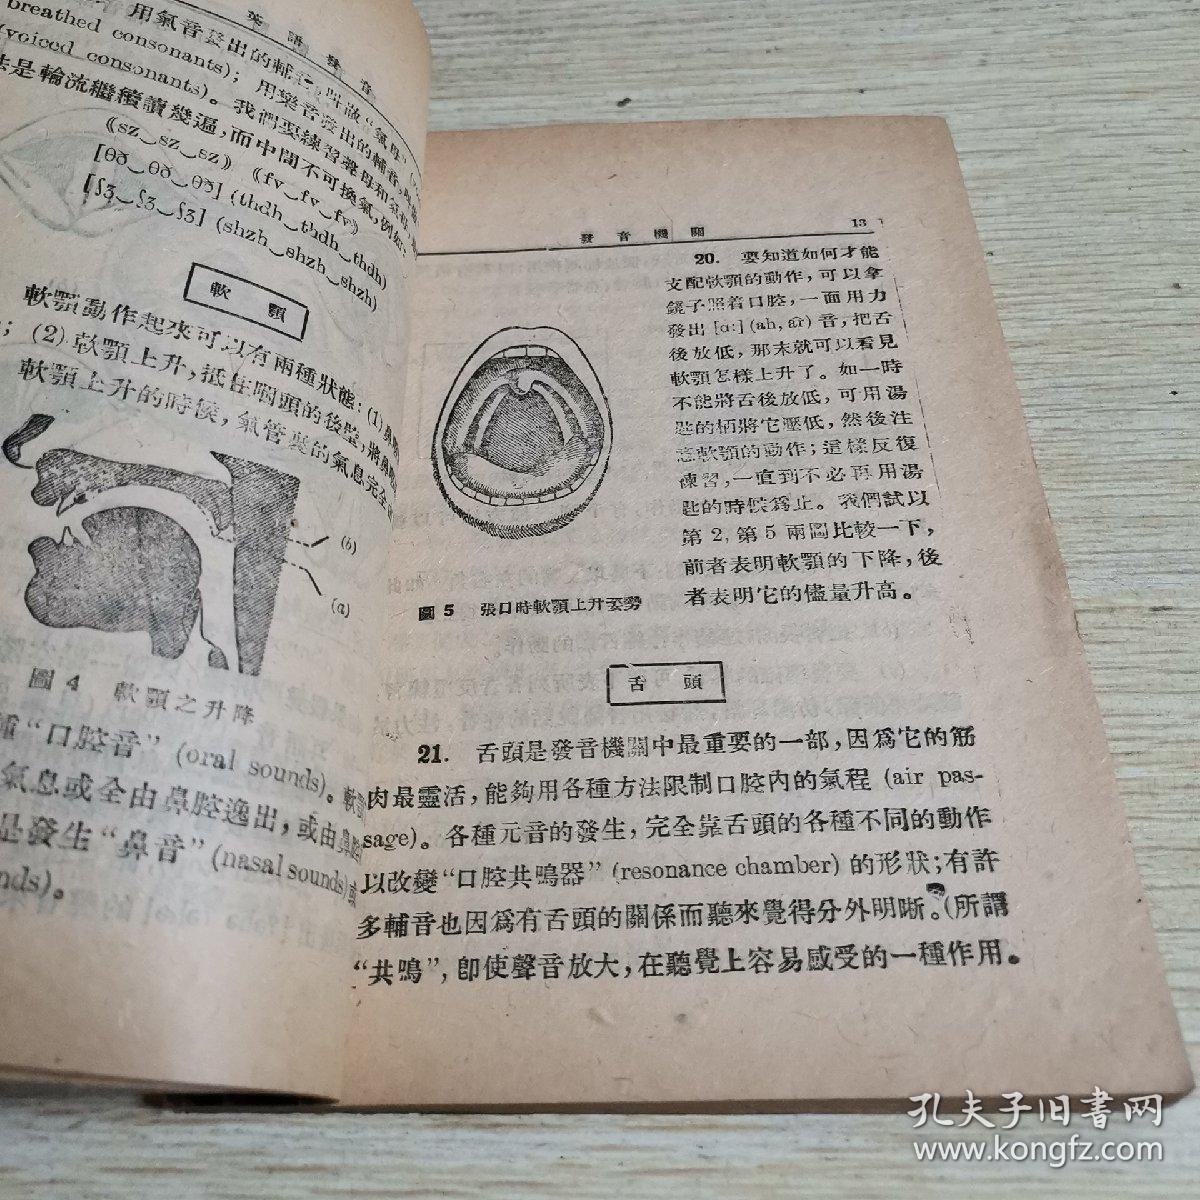 英語發音
用氣音發出的輔音叫做“氣母”
breathed consonants); 用樂音發出的輔音,
(voiced consonants)。我們要練習聲母和氣母,
法是輪流繼續讀幾遍,而中間不可換氣,例如:
⟪sz‿sz‿sz⟫ ⟪fv‿fv‿fv⟫
[θð‿θð‿θð] (thdh‿thdh‿thdh)
[ʃʒ‿ʃʒ‿ʃʒ] (shzh‿shzh‿shzh)
軟顎
軟顎動作起來可以有兩種狀態: (1)
; (2) 軟顎上升,抵住咽頭的後壁,將鼻
軟顎上升的時候,氣管裏的氣息完全
(b)
(a)
圖 4 軟顎之升降
種“口腔音” (oral sounds)。軟
氣息或全由鼻腔逸出,或由鼻
是發生“鼻音” (nasal sounds) 或
nds)。
發音機關 13
20. 要知道如何才能
支配軟顎的動作,可以拿
鏡子照着口腔,一面用力
發出 [ɑː] (ah, är) 音,把舌
後放低,那末就可以看見
軟顎怎樣上升了。如一時
不能將舌後放低,可用湯
匙的柄將它壓低,然後注
意軟顎的動作;這樣反復
練習,一直到不必再用湯
匙的時候爲止。我們試以
第 2, 第 5 兩圖比較一下,
前者表明軟顎的下降,後
者表明它的儘量升高。
圖 5 張口時軟顎上升姿勢
舌頭
21. 舌頭是發音機關中最重要的一部,因爲它的筋
肉最靈活,能夠用各種方法限制口腔內的氣程 (air pas-
sage)。各種元音的發生,完全靠舌頭的各種不同的動作
以改變“口腔共鳴器” (resonance chamber) 的形狀;有許
多輔音也因爲有舌頭的關係而聽來覺得分外明晰。(所謂
“共鳴”, 卽使聲音放大,在聽覺上容易感受的一種作用。
孔夫子旧书网
www.kongfz.com